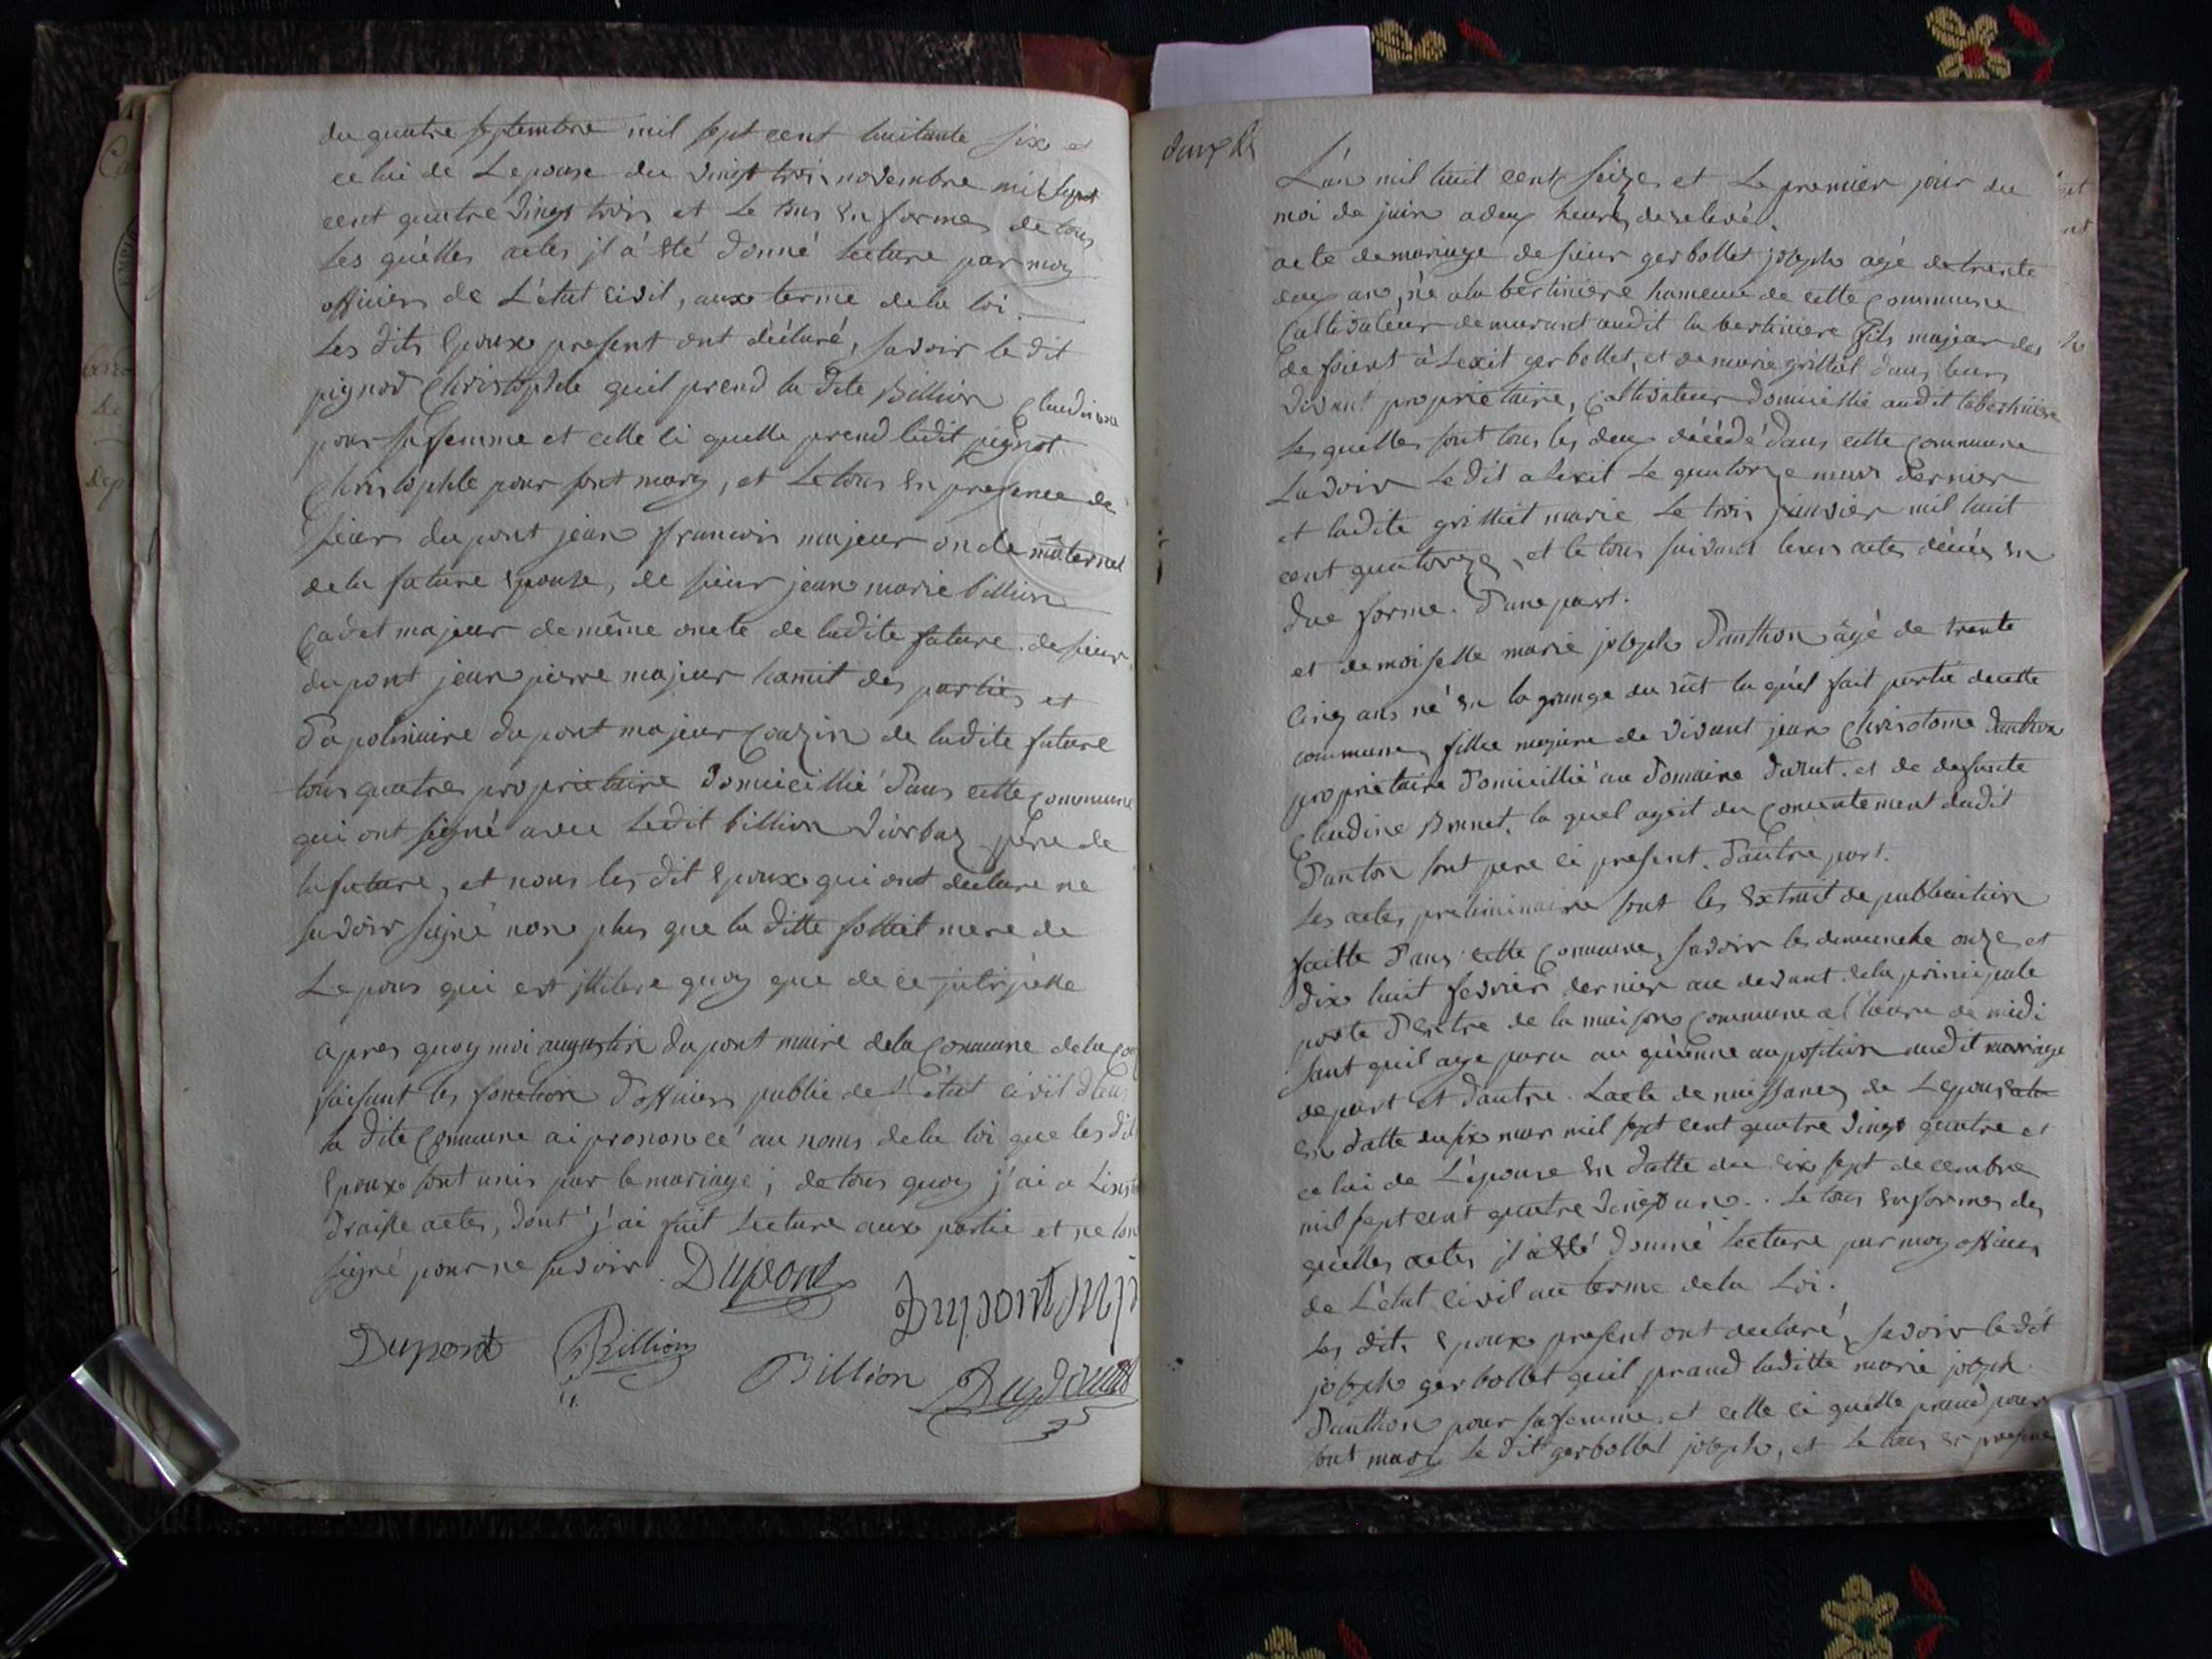 du quatre septembre mil sept cent huitante six et
celui de Lepouse du vingt trois novembre mil sept
cent quatre vingt trois et le tous en formes de tous
les quélles actes jl a été donné lecture par moy
officier de L'état civil, aux terme de la loi.
les dits Epoux present ont déclaré, savoir le dit
pignod Christophle quil prend la dite Billion Claudinne
pour sa femme et celle ci quelle prend ledit pignot
Christophle pour sont mary, et le tous en presence de
sieur dupont jean francois majeur oncle maternel
de la future epouse, de sieur jean marie billion
Cadet majeur de même oncle de ladite future, de sieur
dupont jean pierre majeur hamit des parties et
d'apolinaire dupont majeur Couzin de ladite future
tous quatres proprietaire domicillié dans cette commune
qui ont signé avec ledit billion père de
la future, et nous les dit epoux qui ont declare ne
savoir signé non plus que la ditte mere de
Lepous qui est jllitere quoy que de ce
apres quoy moi augustin dupont maire de la Commune de la
faisant les fonction d'officier public de l'état civil dans
la dite Commune ai prononcé au noms de la loi que les dits
Epoux sont unis par le mariage; de tous quoy j'ai a Linstant
draisse actes, dont j'ai fait lecture aux partie et ne
signé pour ne savoir. Dupont
Dupont Billion Billion Dupont
duxple
L'an mil huit cent seize et le premier jour du
moi de juin a deux heures de relevé.
acte de mariage de sieur gerbollet joseph agé de trente
deux ans, né a la bertiniere hameau de cette Commune
Cultivateur demurant audit la bertiniere fils majeur des
defient aLexit gerbollet, et de marie grilliet dans leurs
vivant proprietaire, Cultivateur domicillié audit la bertiniere
Lesquelles sont tous les deux décédé dans cette Commune
savoir Ledit alexit le quatorze mars dernier
et ladite grilliet marie le trois janvier mil huit
cent quatorze, et le tous suivant leurs actes décés en
due forme. d'une part.
et demoiselle marie joseph danthon âgé de trente
cinq ans né en la grange du la quél fait partie de cette
commune, fille majeure de vivant jean Chrisotome danthon
proprietaire domicillié au domaine et de defuncte
Claudine Bonnet, la quel agit du consentement dudit
danton sont pere ci present. d'autre part.
Les actes preliminaire sont les Extrait de publication
faitte dans cette Commune, savoir les dimanche onze et
dix huit fevrier dernier au devant de la principale
porte d'Entre de la maison Commune a l'heure de midi
sant quil aye paru au quienne auposition audit mariage
de part et d'autre. Lacte de naissance de Lepous
en datte du six mar mil sept cent quatre vingt quatre et
celui de L'epouse en datte du dix sept decembre
mil sept cent quatre vingt un. Le tous en formes des
quélles actes jl a été donné lecture par moy officier
de L'état civil au terme de la Loi.
Les dits epoux present ont declaré, savoir le dit
joseph gerbollet quil prand laditte marie joseph
danthon pour sa femme, et celle ci quelle prand pour
sont mary le dit gerbollet joseph, et le tous en presence